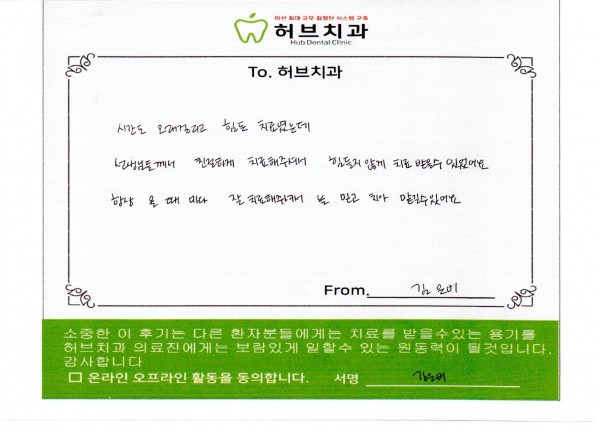 아산 최대 규모 최첨단 시스템 구축
허브치과
Hub Dental Clinic
To. 허브치과
시간도 오래걸리고 힘든 치료였는데
선생님들께서 친절하게 치료해주셔서 힘들지 않게 치료 받을수 있었어요
항상 올 때 마다 잘 치료해주셔서 늘 믿고 치아 맡길수있어요
From. 김
소중한 이 후기는 다른 환자분들에게는 치료를 받을수있는 용기를
허브치과 의료진에게는 보람있게 일할수 있는 원동력이 될것입니다.
감사합니다
□ 온라인 오프라인 활동을 동의합니다. 서명